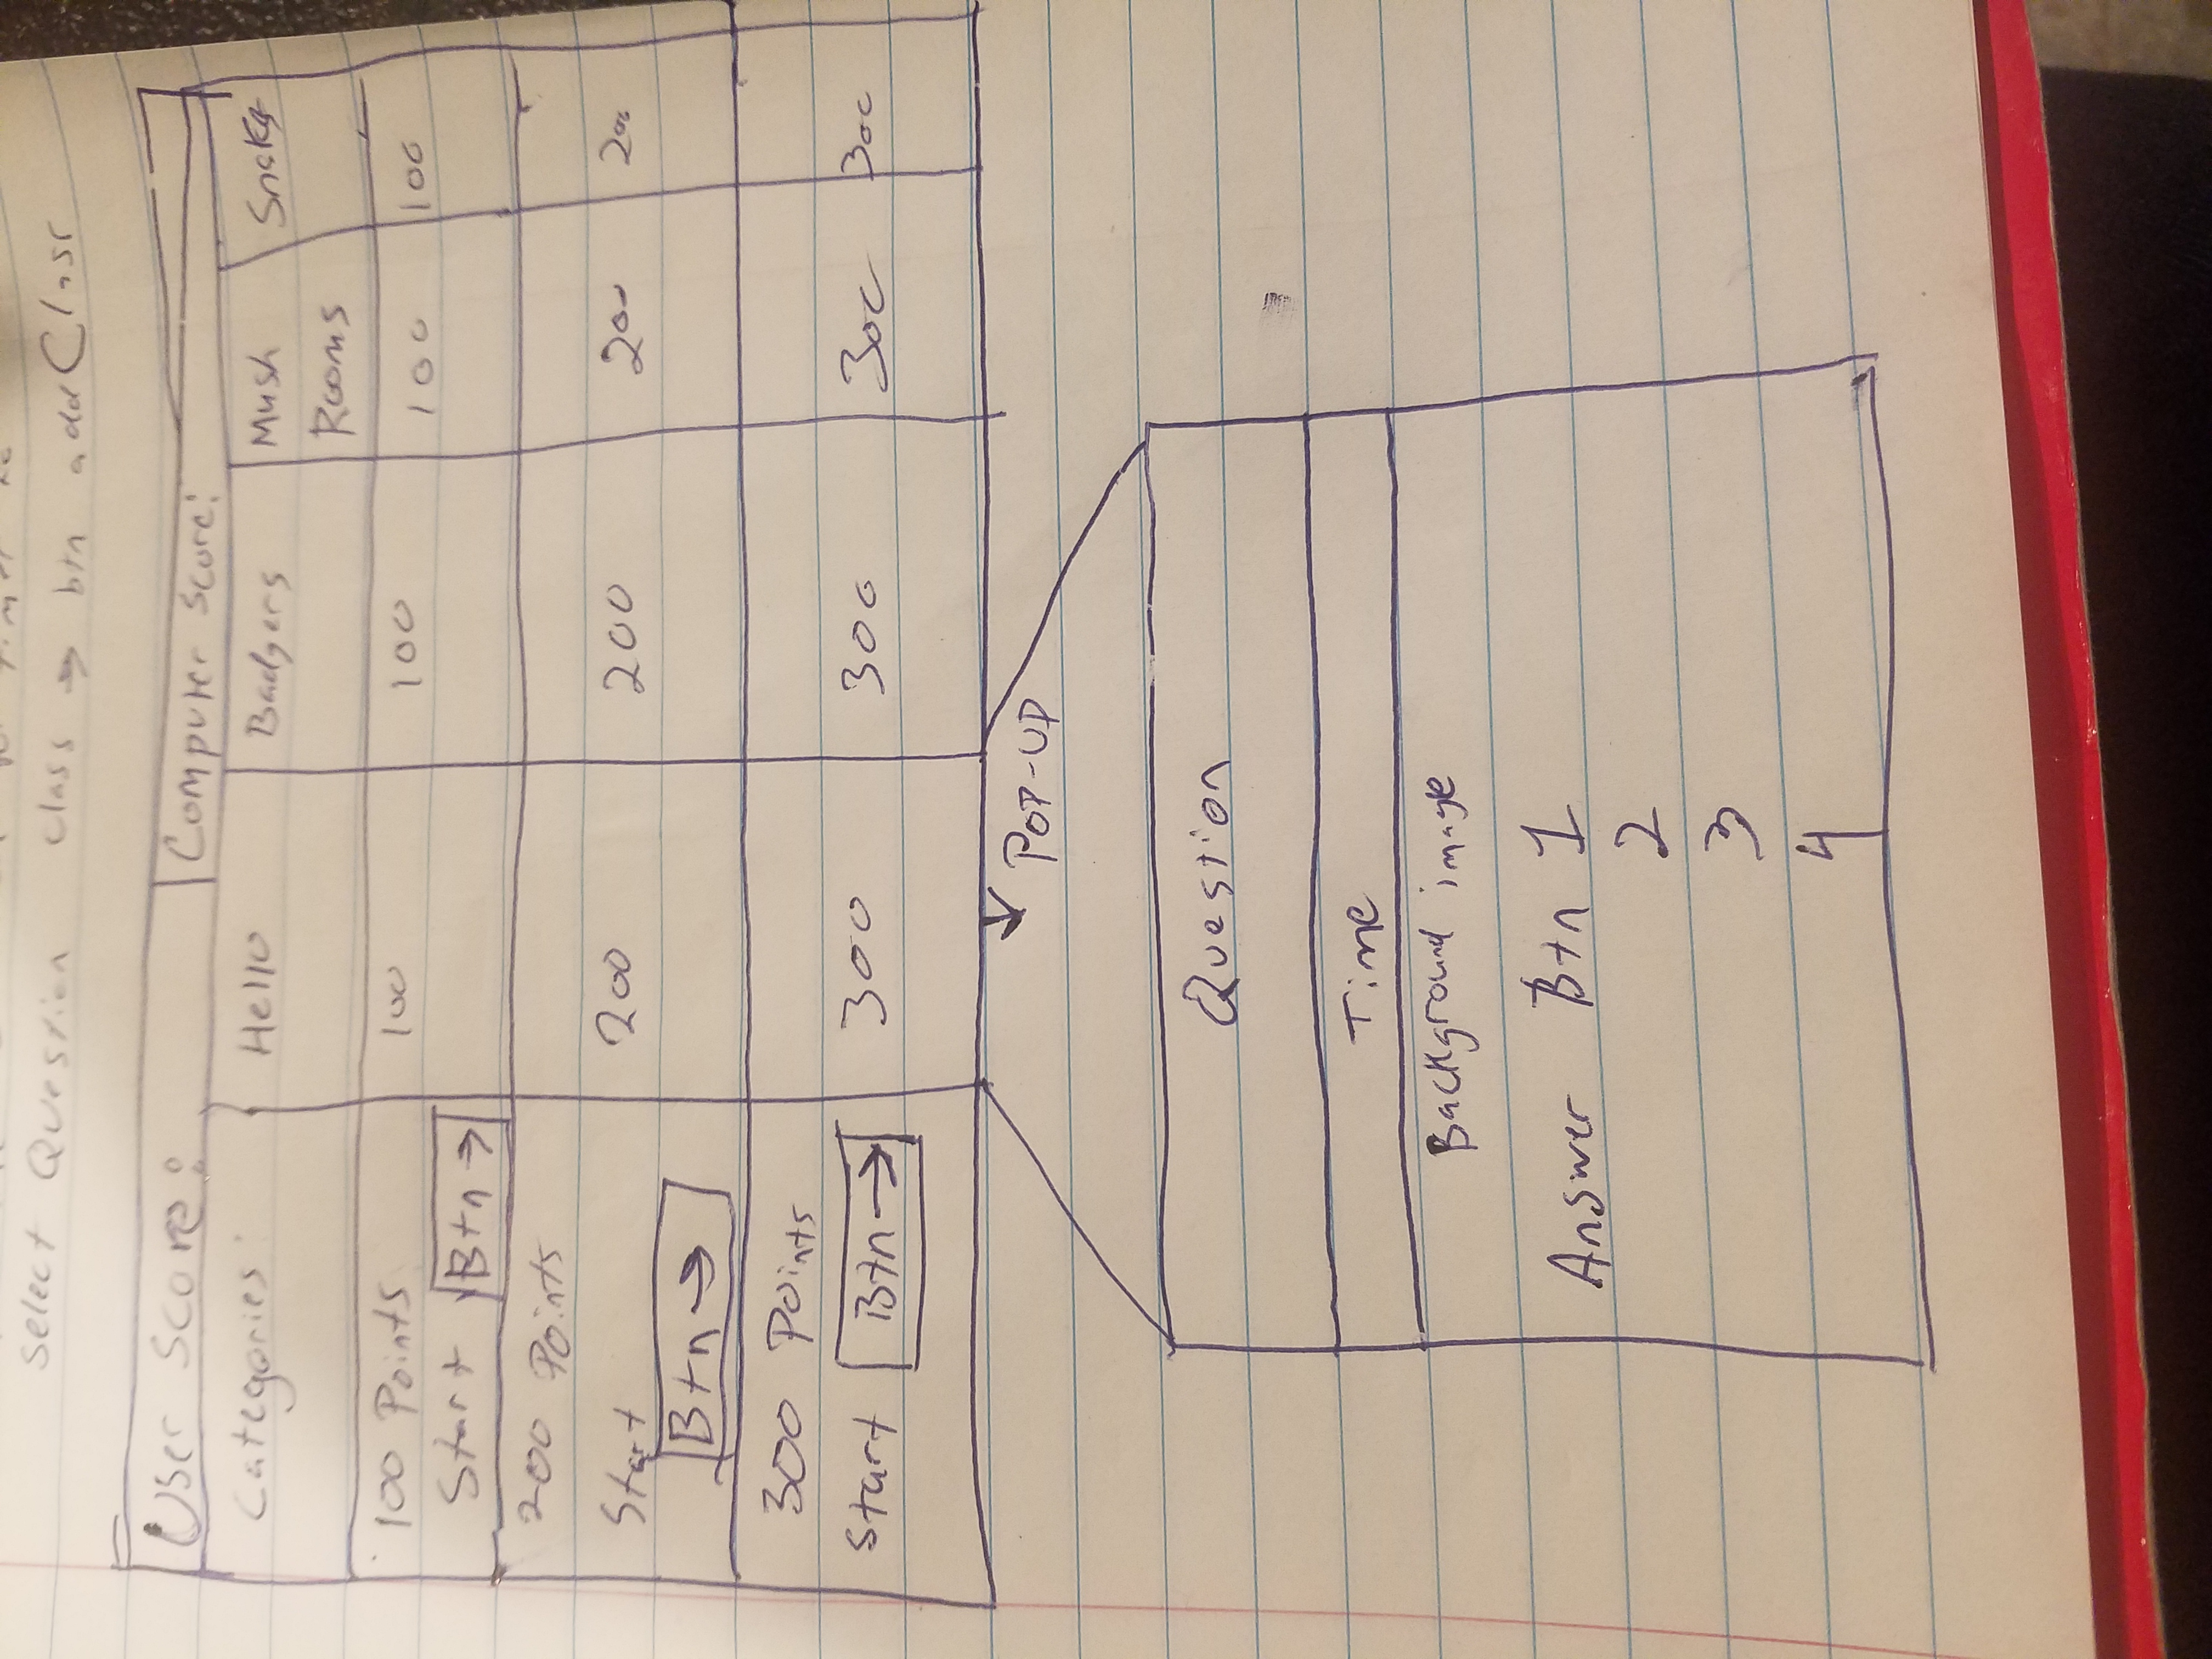 for timer
Select Question class → btn addClass
User Score: Computer Score:
Categories: Hello Badgers Mush Rooms Snakes
100 Points 100 100 100 100
Start Btn →
200 Points
Start 200 200 200 200
Btn →
300 Points
Start Btn → 300 300 300 300
↓ POP-UP
Question
Time
Background image
Answer Btn 1
2
3
4